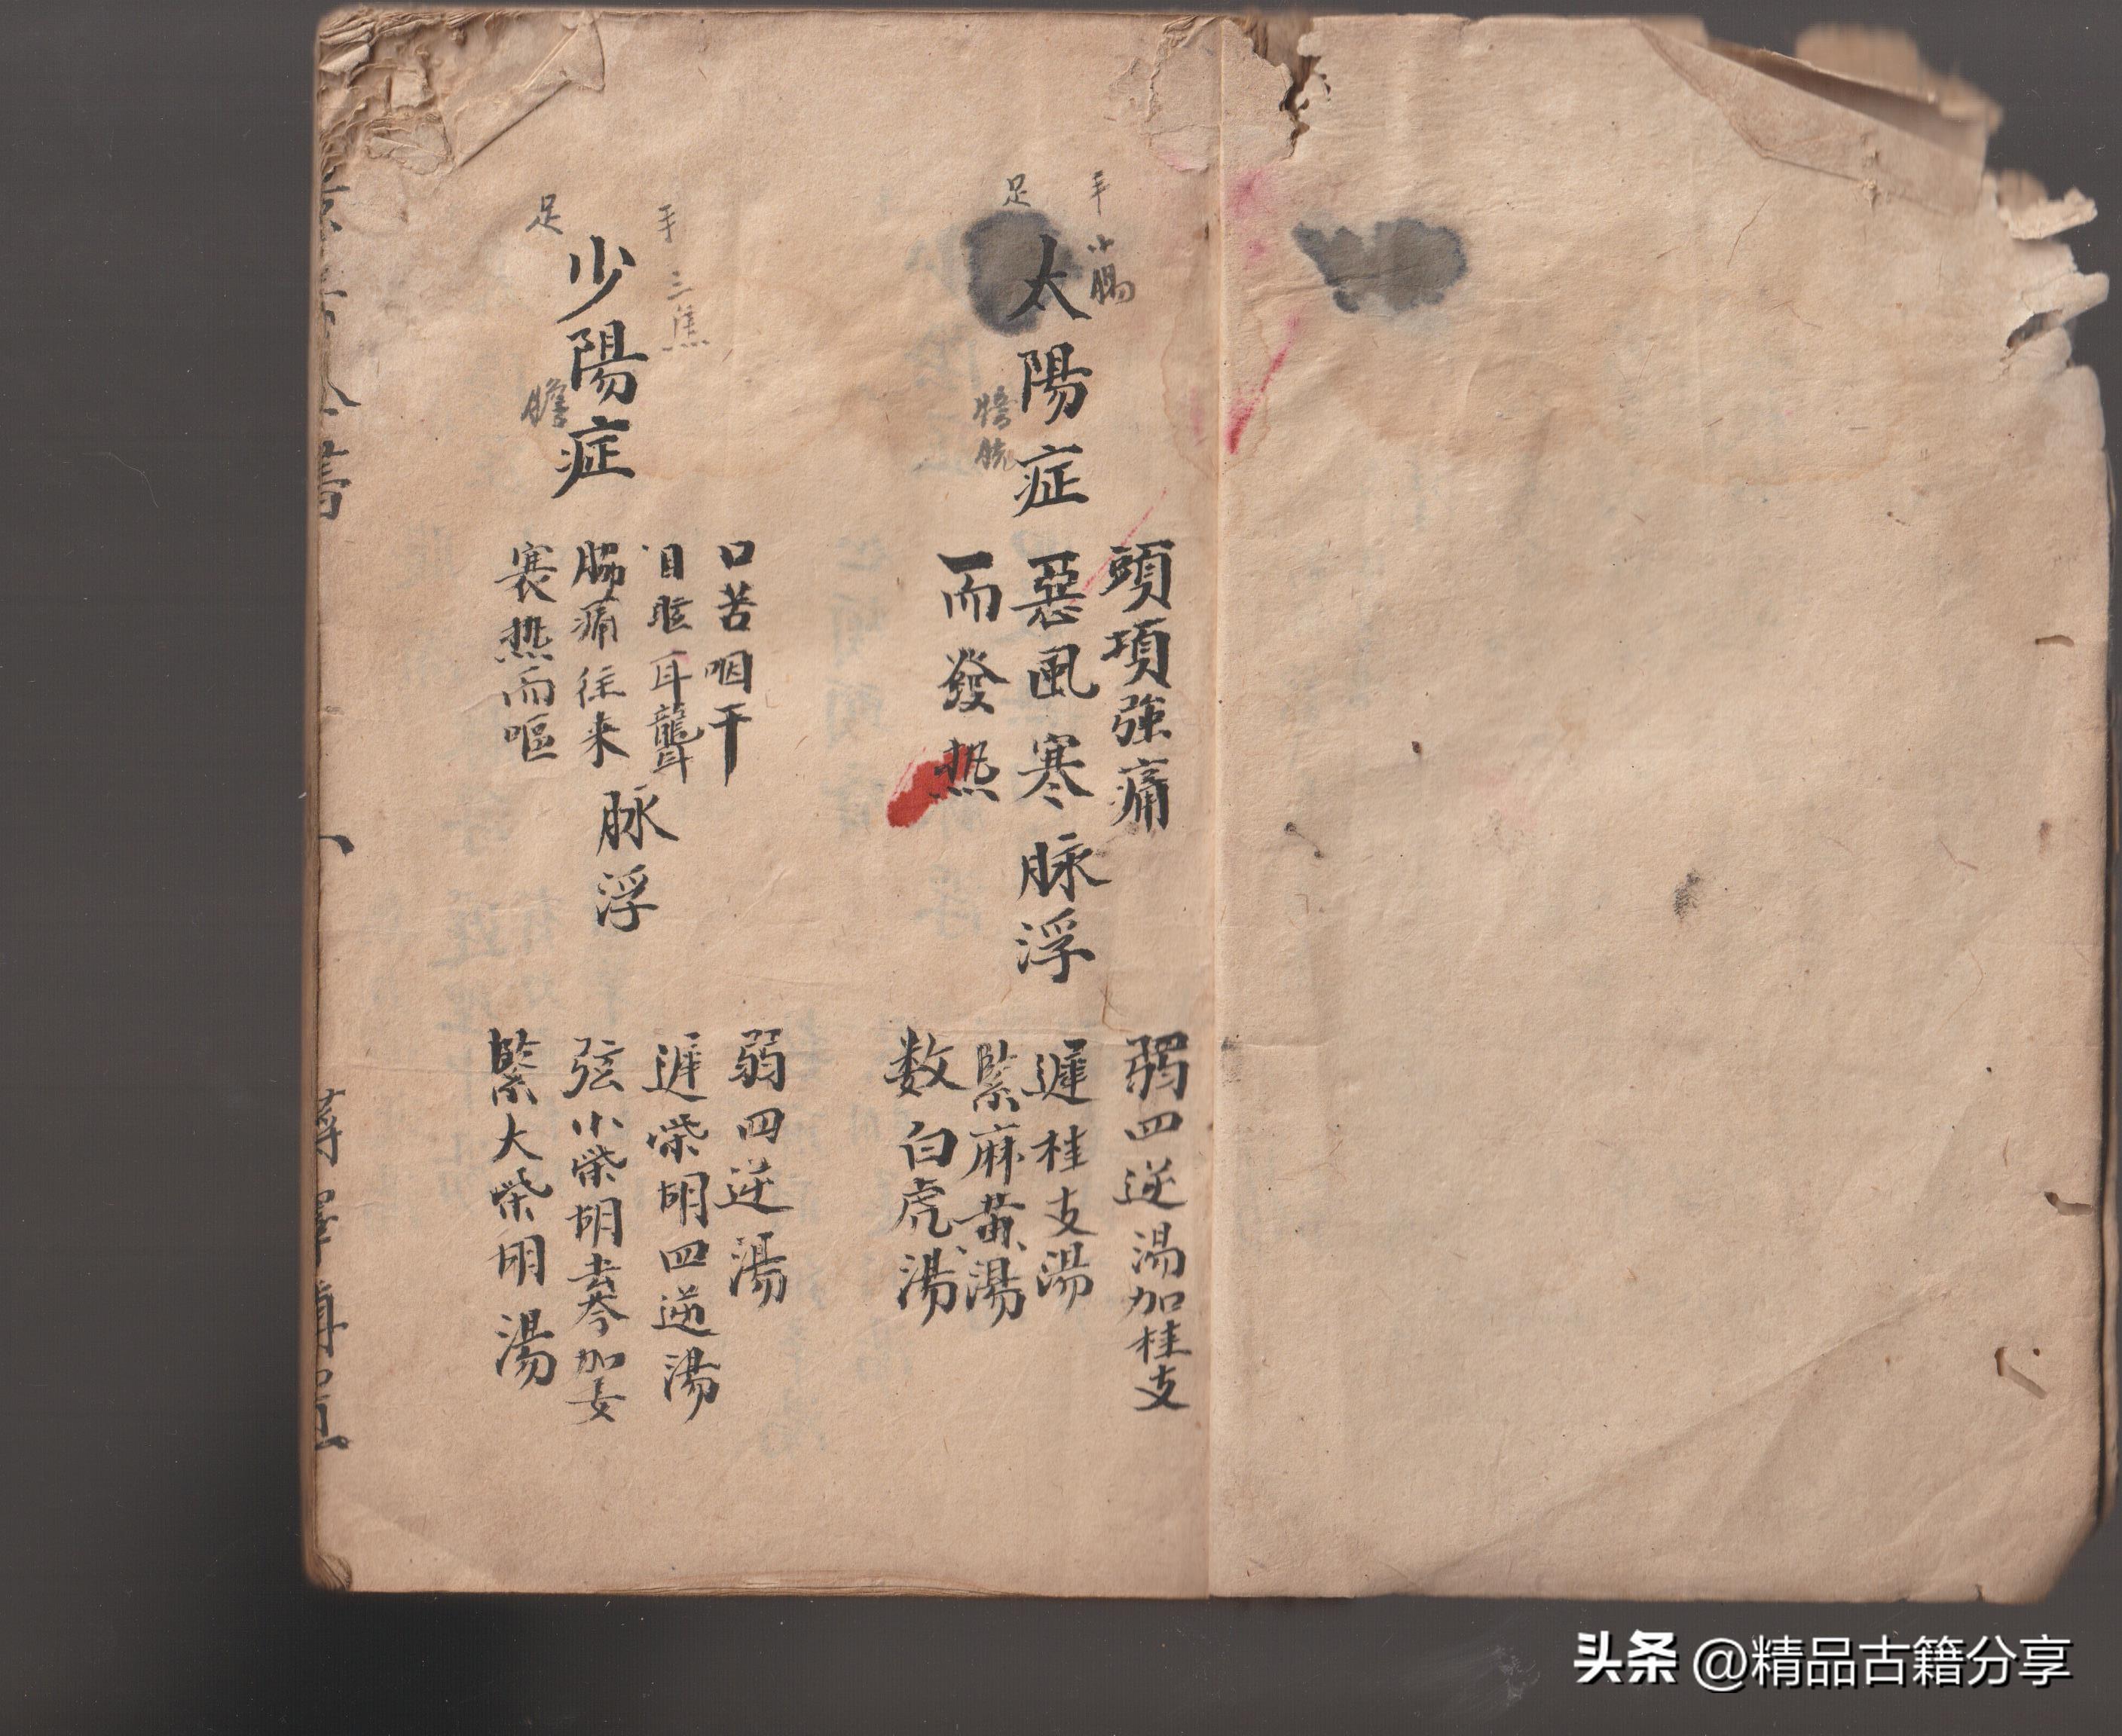 手 小腸
足 膀胱
太陽症
頭項強痛
惡風寒
而發热
脉浮
弱四逆湯加桂支
遲桂支湯
緊麻黄湯
数白虎湯
手 三焦
足 膽
少陽症
口苦咽干
目眩耳聾
肠痛往来
寒热而嘔
脉浮
弱四逆湯
遲柴胡四逆湯
弦小柴胡去芩加女
緊大柴胡湯
头条 @精品古籍分享